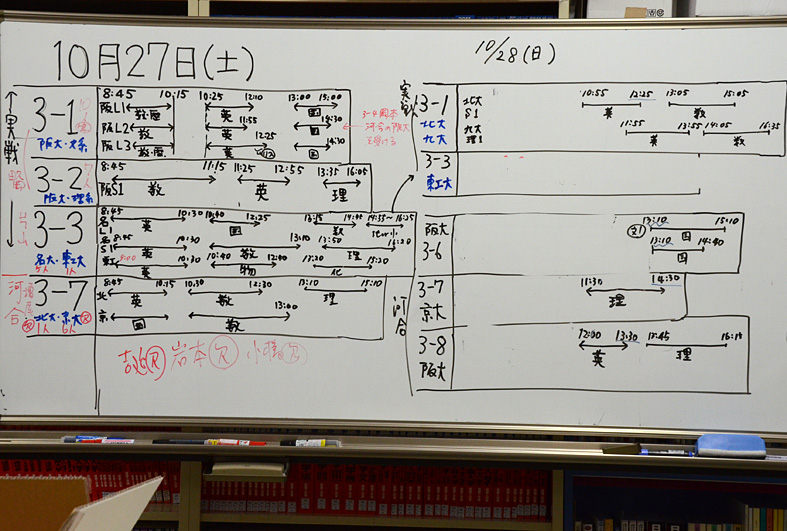 10月27日(土)
実戦
3-1
阪大・文系
8:45 10:15 10:25 12:10 13:00 15:00
阪L1 数・歴 英 国
阪L2 数 英 11:55 国 14:30
阪L3 数・歴 英 12:25 国 14:30
3-2
阪大・理系
8:45 11:15 11:25 12:55 13:35 16:05
阪S1 数 英 理
3-3
名大・東工大
5人 1人
8:45 10:30 10:40 12:25 13:15 14:45 14:55~16:25
名L1 英 国 数
名S1 8:45 英 10:30 数 13:10 13:50 理 16:20
東工 8:00 英 10:30 10:40 物 12:00 13:20 化 15:20
河合
3-7
北大・京大
1人 6人
8:45 10:15 10:30 12:30 13:10 15:10
北 英 数 理
京 国 数 13:00
岩本 欠
10/28(日)
実戦
3-1
北大
九大
北大
S1
九大
理1
10:55 12:25 13:05 15:05
英 数
11:55 13:55 14:05 16:35
英 数
3-3
東工大
河合
阪大
3-6
文1
13:10 15:10
国
13:10 14:40
国
3-7
京大
11:30 14:30
理
3-8
阪大
12:00 13:30 13:45 16:15
英 理